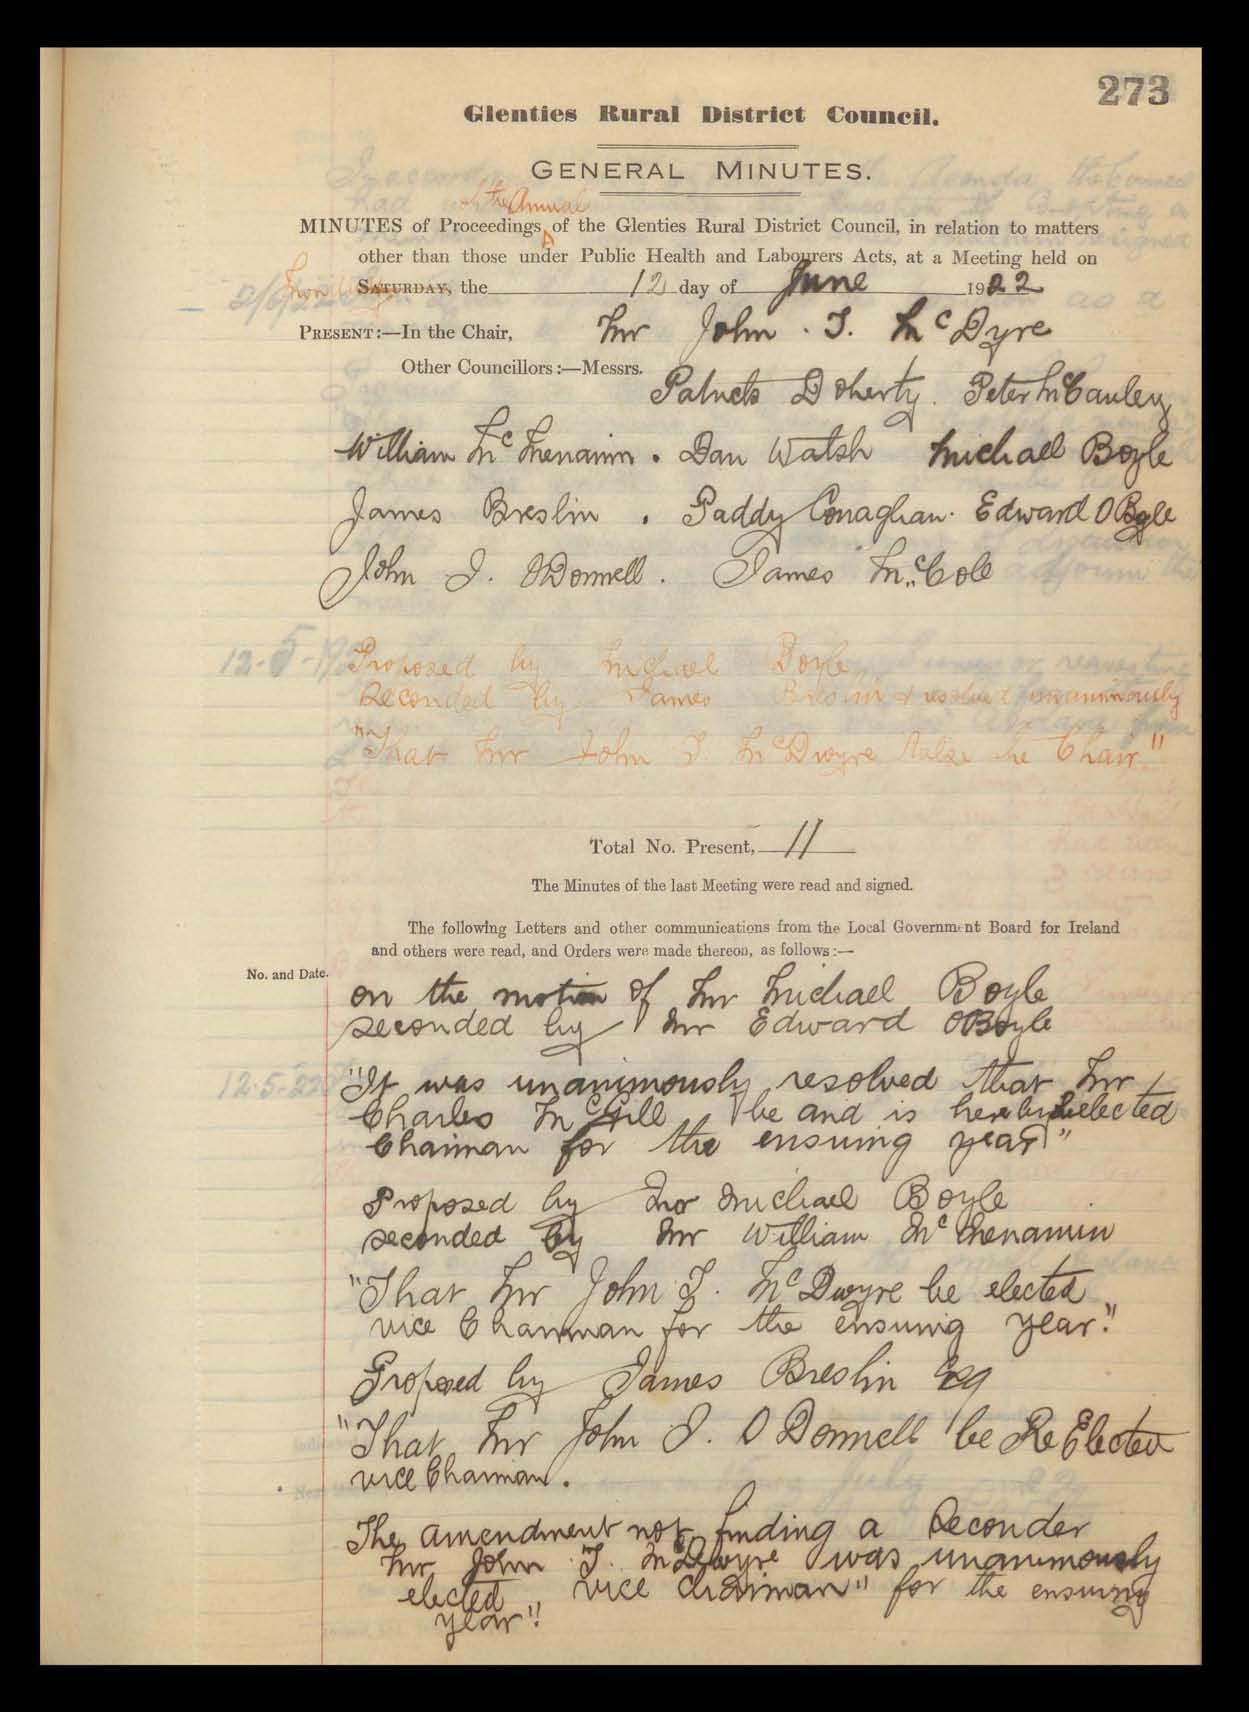 273
Glenties Rural District Council.
GENERAL MINUTES.
of the Annual
MINUTES of Proceedings of the Glenties Rural District Council, in relation to matters
other than those under Public Health and Labourers Acts, at a Meeting held on
SATURDAY, the 12 day of June 1922
PRESENT:—In the Chair, Mr John . T. McDyre
Other Councillors:—Messrs.
Patrick Doherty. Peter McCauley
William McMenamin . Dan Walsh Michael Boyle
James Breslin . Paddy Conaghan. Edward O Boyle
John J. O'Donnell . James McCole
12-5-
Proposed by Michael Boyle
Seconded by James Breslin & resolved unanimously
"That Mr John T. McDwyre take he Chair"
Total No. Present, 11
The Minutes of the last Meeting were read and signed.
The following Letters and other communications from the Local Government Board for Ireland
and others were read, and Orders were made thereon, as follows:—
No. and Date.
on the motion of Mr Michael Boyle
seconded by Mr Edward OBoyle
12-5-22
"It was unanimously resolved that Mr
Charles McGill be and is hereby Reelected
Chaiman for the ensuing year"
Proposed by Mr Michael Boyle
seconded by Mr William McMenamin
"That Mr John T. McDwyre be elected
vice Chairman for the ensuing year."
Proposed by James Breslin Esq
"That Mr John J. O Donnell be ReElected
vice Chaiman.
The amendment not finding a Seconder
Mr John T. McDwyre was unanimously
elected vice chairman" for the ensuing
year"